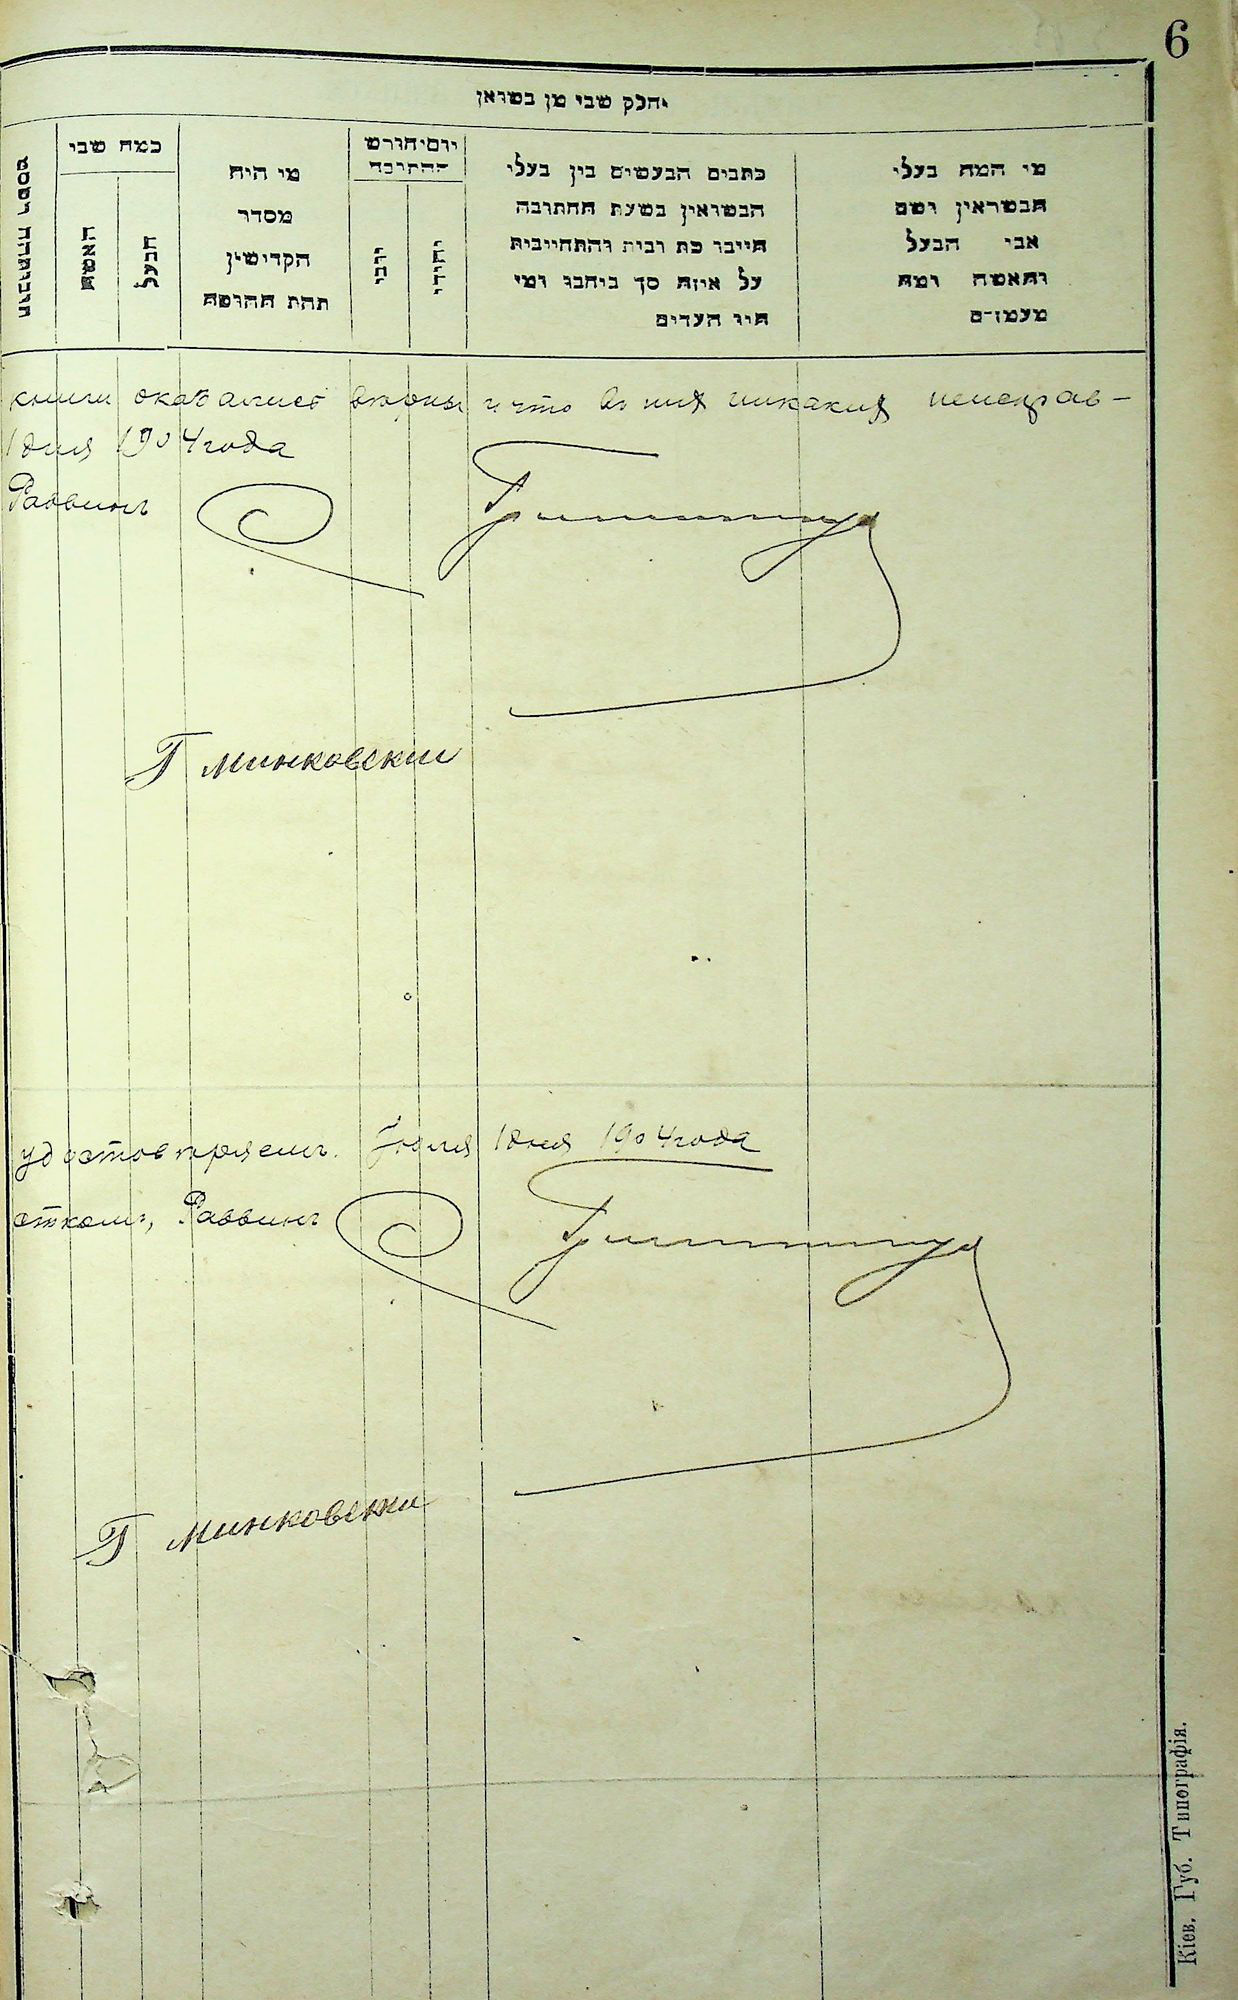 6
חלק שני מן נשואן
מי המה בעלי
הנשואין ושם
אבי הבעל
והאשה ומה
מעמדם
כתבים הנעשים בין בעלי
הנשואין בשעת החתונה
היינו כת ובית והתחייבות
על איזה סך ניתנו ומי
היו העדים
יום וחודש
החתונה
יהודי
נוצרי
מי היה
מסדר
הקדושין
תחת החופה
כמה שני
הבעל
האשה
книги оказались верны и что въ нихъ никакихъ неисправ-
1 дня 1904 года
Раввинъ
Г Минковский
удостоверяемъ. Июля 1 дня 1904 года
Раввинъ
Г Минковский
Кіев. Губ. Типографія.